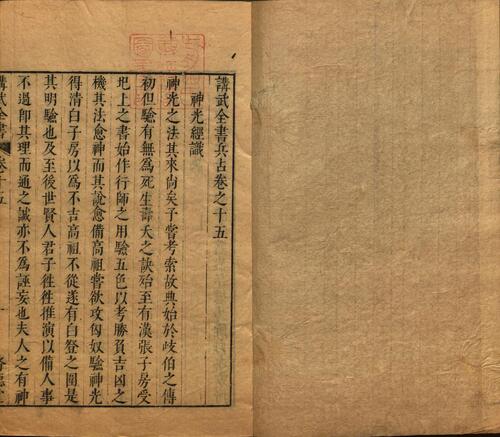 講武全書兵占卷之十五
神光經識
神光之法其來尚矣予嘗考索故典始於歧伯之傳
初但驗有無為死生壽夭之訣殆至有漢張子房受
圯上之書始作行師之用驗五色以考勝負吉凶之
機其法愈神而其說愈備高祖嘗欲攻匈奴驗神光
得清白子房以為不吉高祖不從遂有白登之圍是
其明驗也及至後世賢人君子徃徃推演以備人事
不過即其理而通之誠亦不為誣妄也夫人之有神
講武全書
卷十五
一